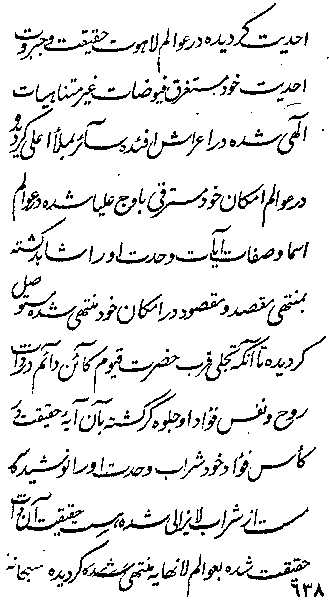 احدیت گردیده در عوالم لاهوت حقیقت و جبروت
احدیت خود مستغرق فیوضات غیر متناهیات
الهی شده در اعراش افئده سائر بملأ اعلی گردیده و
در عوالم امکان خود مترقی باوج علیا شده در عوالم
اسما و صفات آیات وحدت او را شاهد گشته
بمنتهی مقصد و مقصود در امکان خود منتهی شده متوصل
گردیده تا آنکه تجلی قرب حضرت قیوم کائن دائم در ذات
روح و نفس فؤاد او جلوه گر گشته بآن آیه حقیقت از
کأس فؤاد خود شراب وحدت او را نوشیده
مست از شراب لایزالی شده پس حقیقت آن ذات
حقیقت شده بعوالم لانهایه منتهی شده گردیده سبحانه
۹۳۸